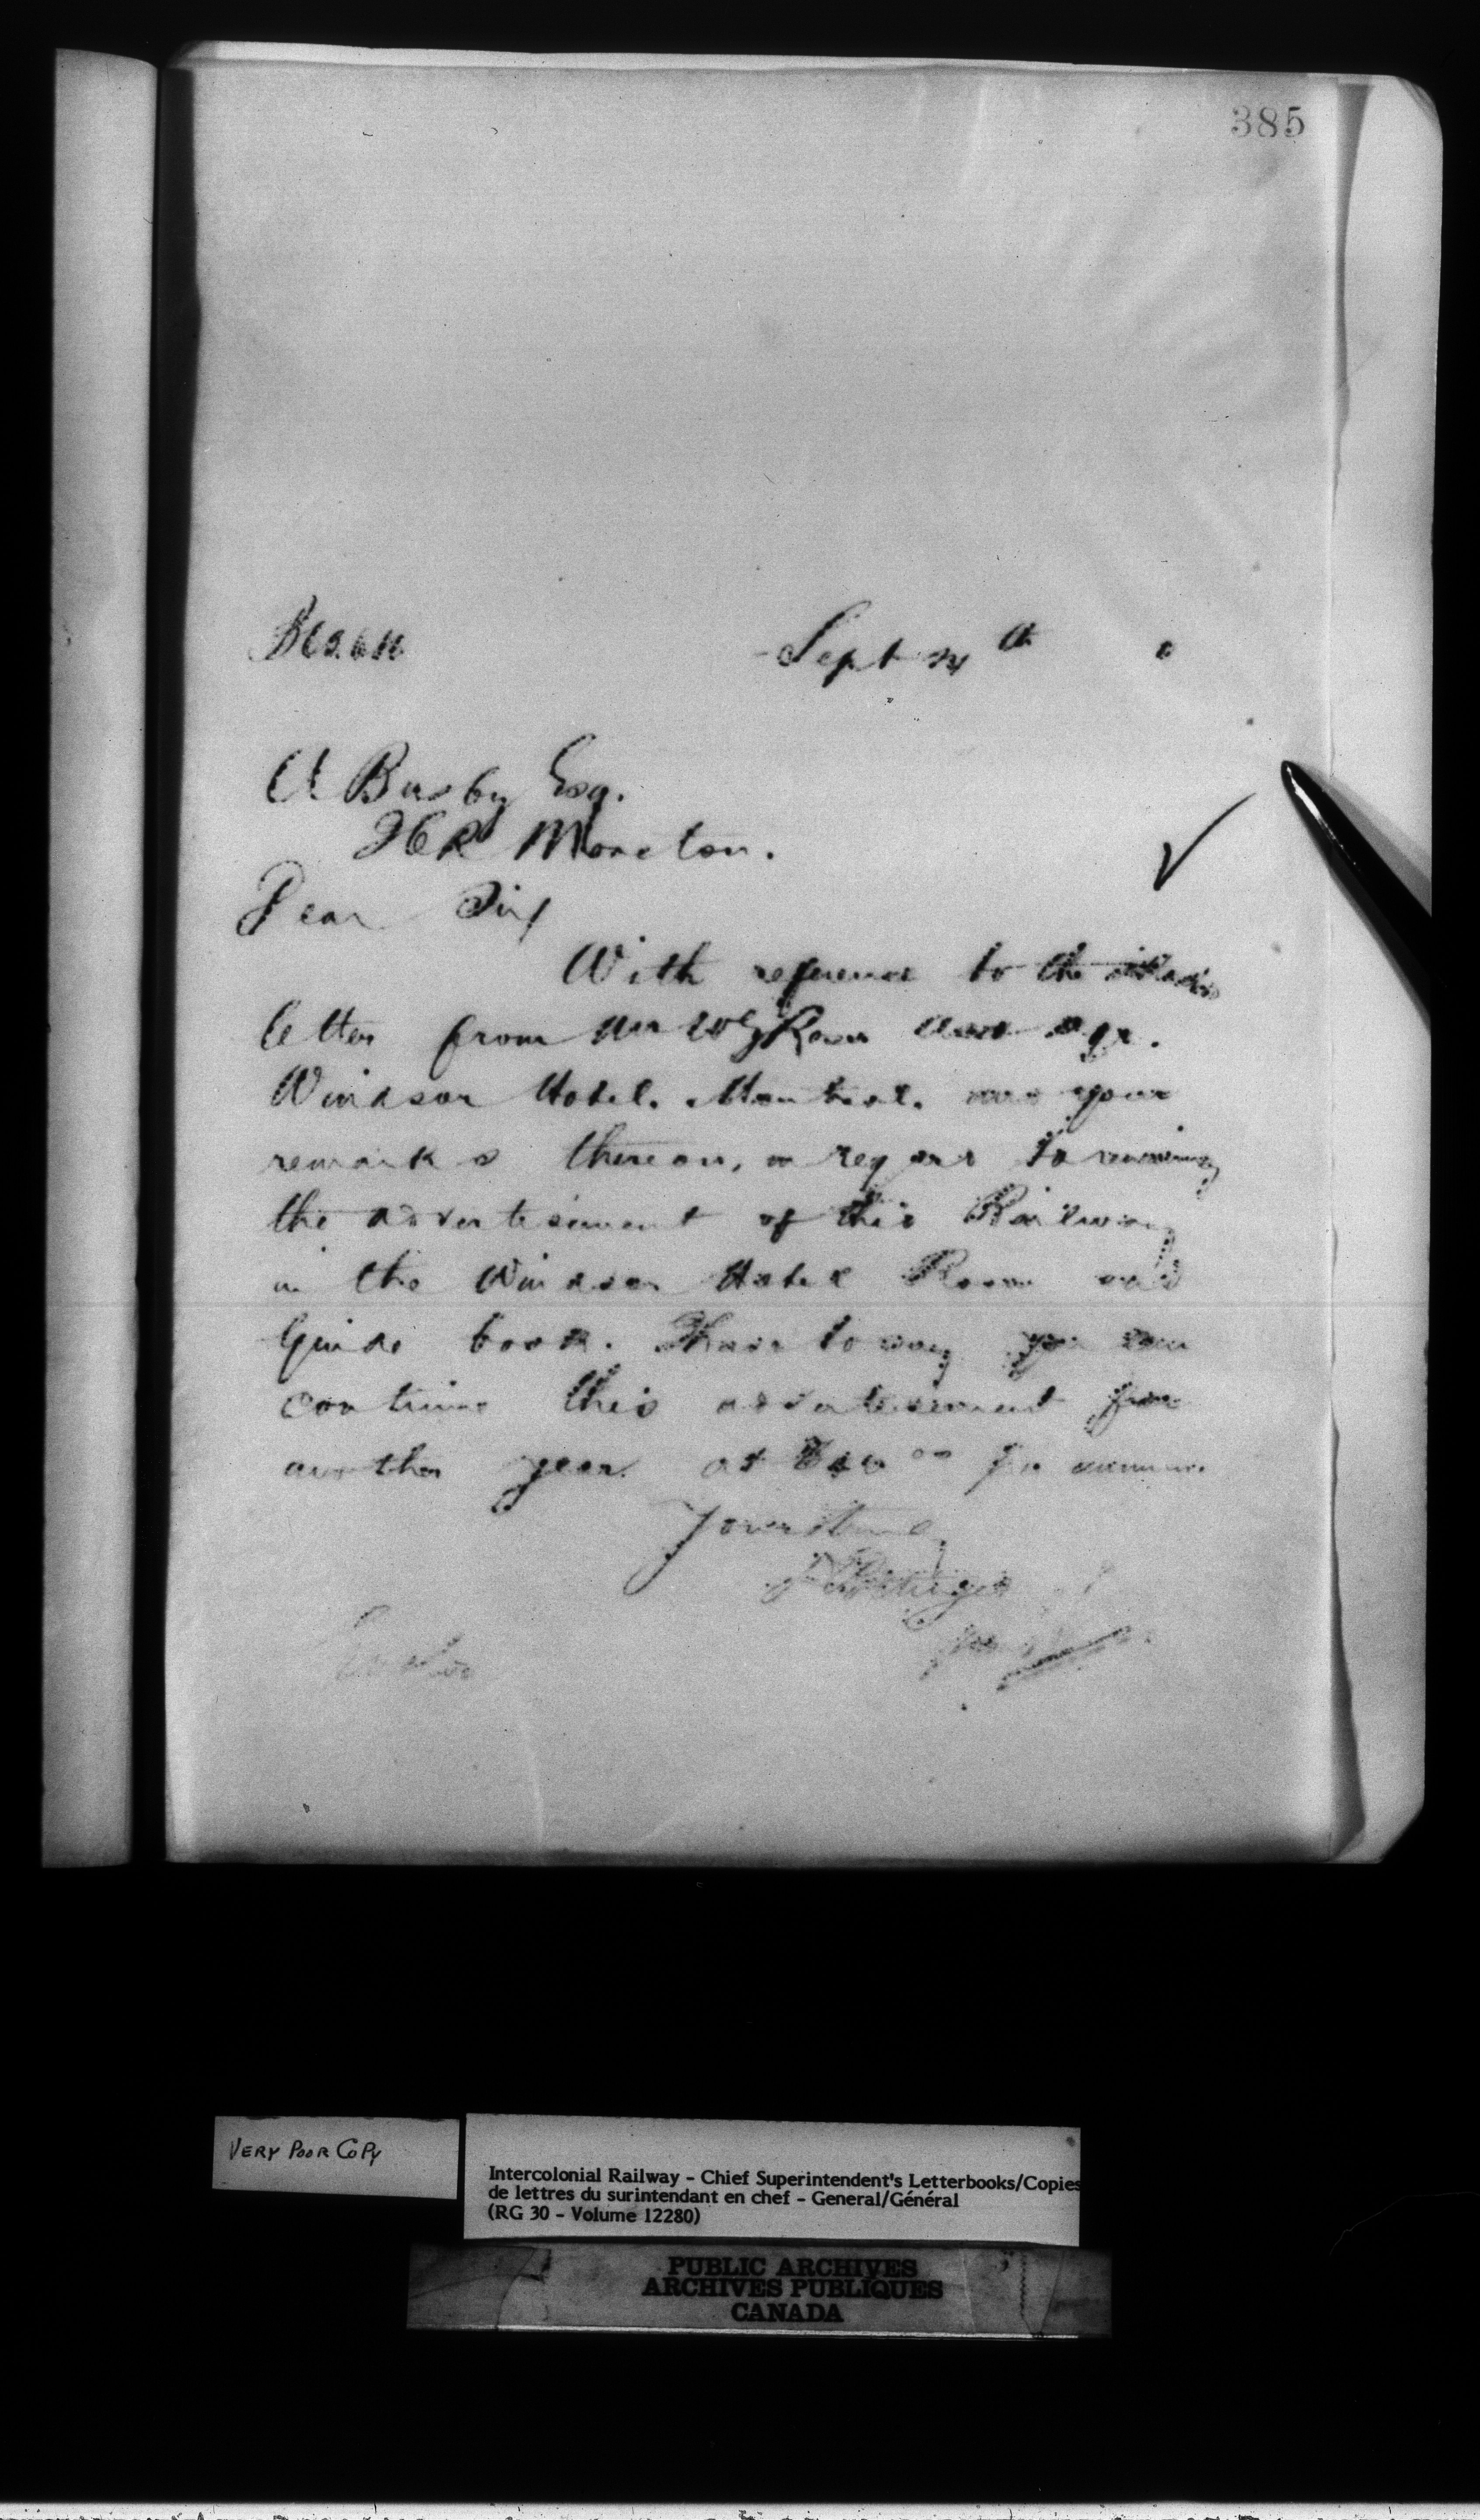 385
Sept 14th
A Busby Esq.
ICR Moncton.
Dear Sir
With reference to the
letter from Mr
Windsor Hotel. Montreal. and your
remarks thereon, in regard to renewing
the advertisement of this Railway
in the Windsor Hotel Room and
Guide book. I have to say you can
continue this advertisement for
another year at per annum.
Yours truly
VERY POOR COPY
Intercolonial Railway – Chief Superintendent's Letterbooks/Copies
de lettres du surintendant en chef – General/Général
(RG 30 – Volume 12280)
PUBLIC ARCHIVES
ARCHIVES PUBLIQUES
CANADA